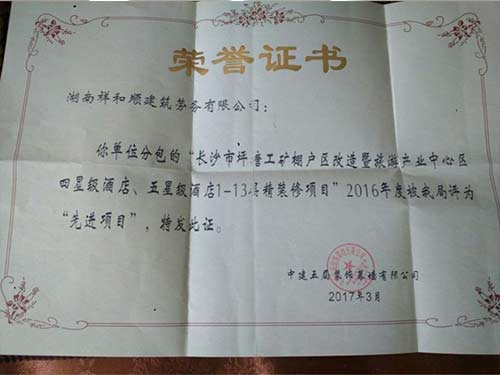 荣誉证书
湖南祥和顺建筑劳务有限公司：
你单位分包的“长沙市坪塘工矿棚户区改造暨旅游产业中心区
四星级酒店、五星级酒店1-13层精装修项目”2016年度被我局评为
“先进项目”，特发此证。
中建五局装饰幕墙有限公司
2017年3月